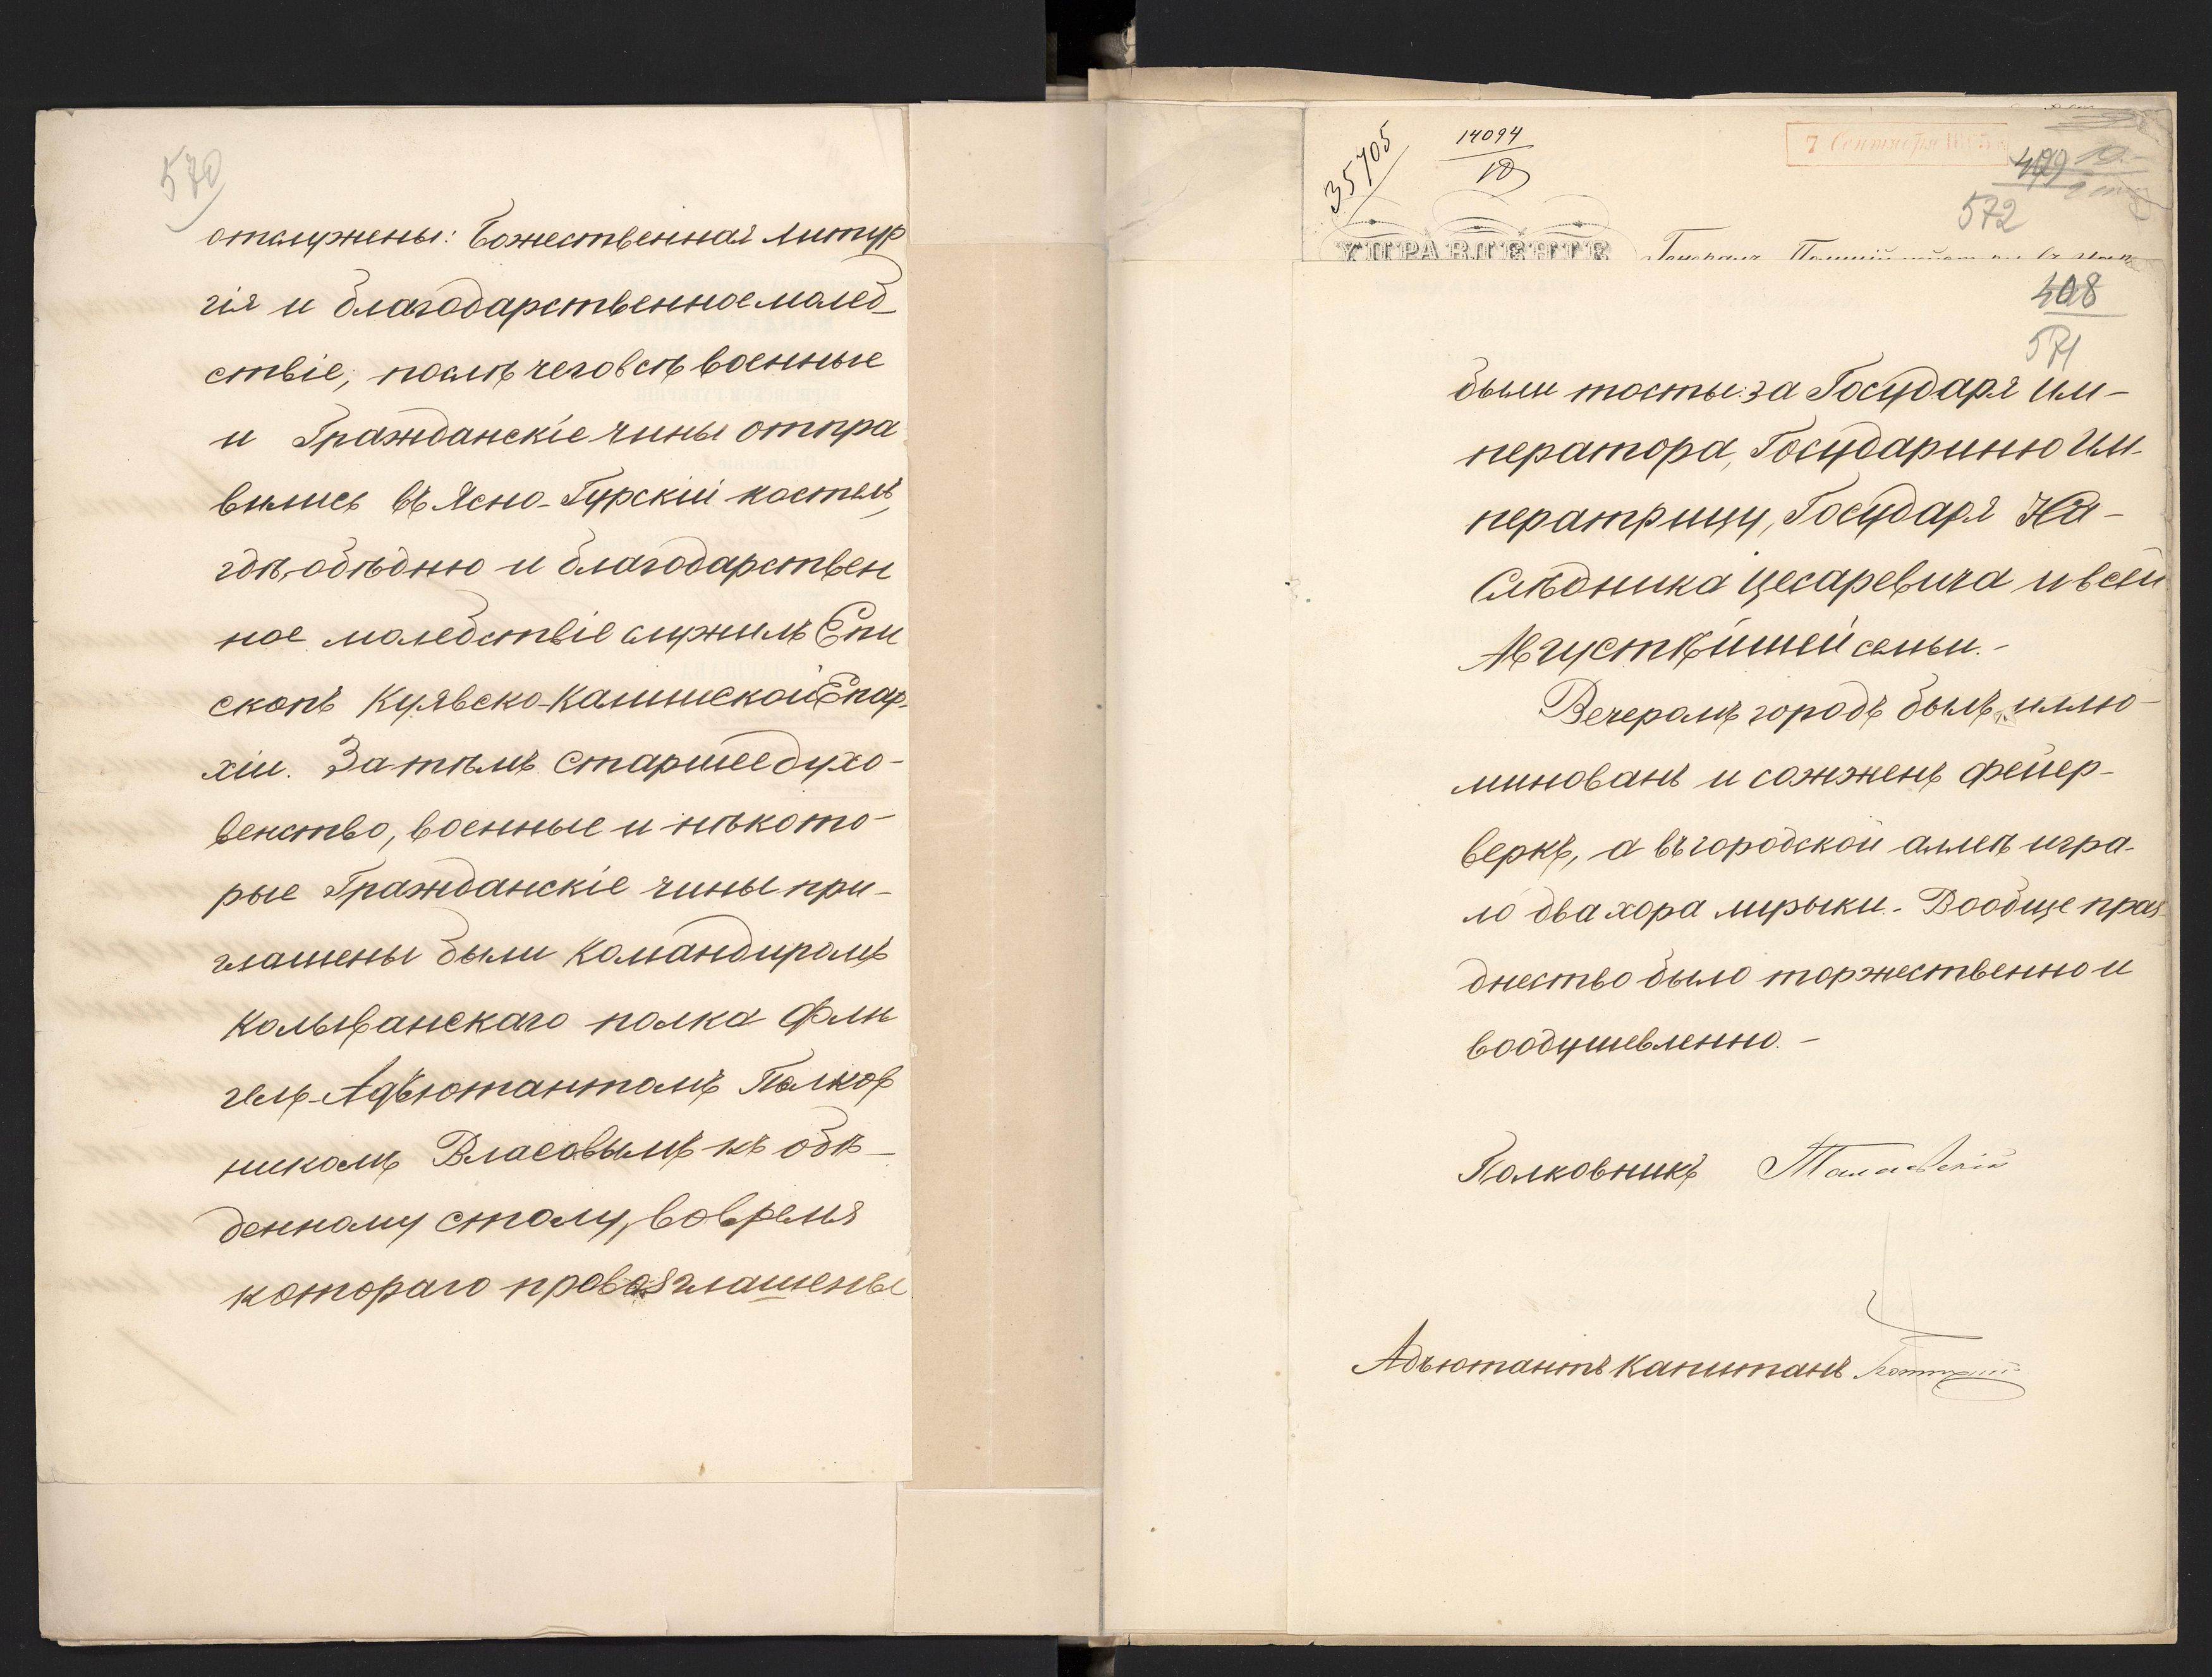 570
отслужены: Божественная Литур
гія и благодарственное молеб-
ствіе, послѣ чего всѣ военные
и Гражданскіе чины отпра
вились въ Ясно-Гурскій костелъ,
гдѣ, обѣдню и благодарствен
ное молебствіе служилъ Епи
скопъ Куявско-Калишской Епар-
хіи. Затѣмъ старшее духо-
венство, военные и нѣкото-
рые Гражданскіе чины при-
глашены были Командиромъ
Колыванскаго полка Фли
гель-Адъютантомъ Полков
никомъ Власовымъ къ обѣ-
денному столу, во время
котораго провозглашены
35705
14094
10
7 Сентября
572
УПРАВЛЕНІЕ
408
571
были тосты: за Государя Им-
ператора, Государиню Им-
ператрицу, Государя На-
слѣдника Цесаревича и всей
Августѣйшей семьи.-
Вечеромъ городъ былъ иллю-
минованъ и сожженъ фейер-
веркъ, а въ городской аллеѣ игра-
ло два хора музыки.- Вообще праз-
днество было торжественно и
воодушевленно.-
Полковникъ
Адъютантъ Капитанъ